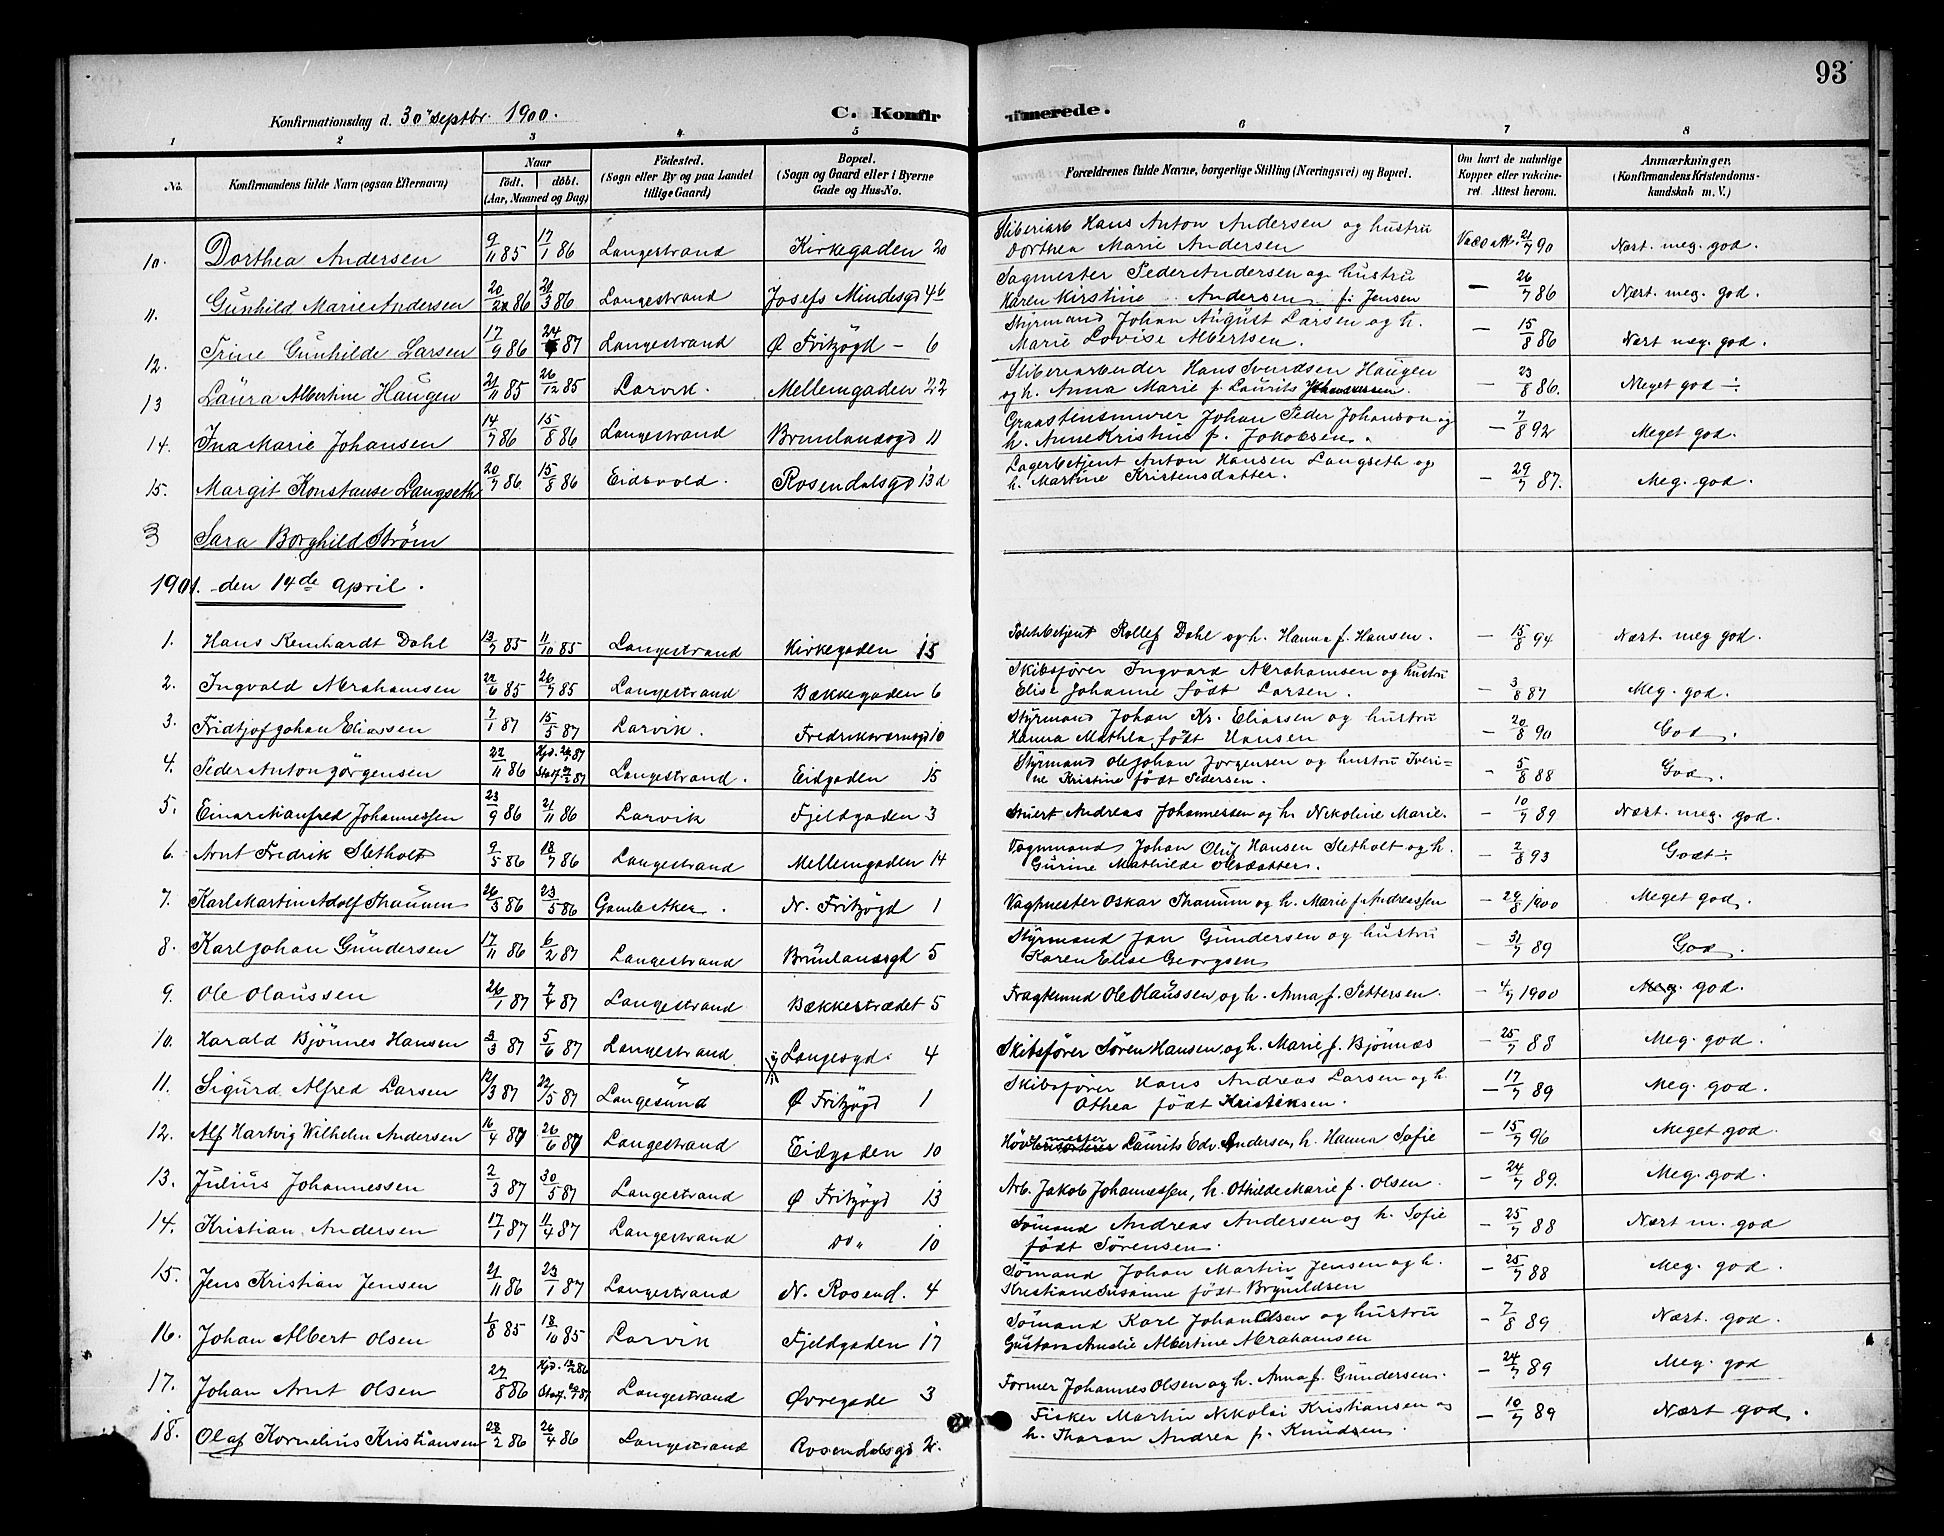 93
Konfirmationsdag d. 30' septbr. 1900.
C. Konfirmerede.
1 2 3 4 5 6 7 8
No. Konfirmandens fulde Navn (ogsaa Efternavn) Naar født. døbt. (Aar, Maaned og Dag) Fødested. (Sogn eller By og paa Landet tillige Gaard) Bopæl. (Sogn og Gaard eller i Byerne Gade og Hus-No. Forældrenes fulde Navne, borgerlige Stilling (Næringsvei) og Bopæl. Om havt de naturlige Kopper eller vakcineret. Attest herom. Anmærkninger. (Konfirmandens Kristendomskundskab m. V.)
10. Dorthea Andersen 9/11 85 17/1 86 Langestrand Kirkegaden 20 Sliberiarb Hans Anton Andersen og hustru Dorthea Marie Andersen 21/7 90 Nært. meg. god.
11. Gunhild Marie Andersen 86 3 86 Langestrand Josefs Mindesgd 46 Sagmester Peder Andersen og hustru Karen Kirstine Andersen f. Jensen — 26/7 86 Nært. meg. god.
12. Trine Gunhilde Larsen 17/9 86 24 87 Langestrand Ø Fritzøgd - 6 Styrmand Johan August Larsen og h. Marie Lovise Albertsen. — 15/8 86 Nært meg. god.
13 Laura Albertine Haugen 21/11 85 26/12 85 Larvik. Mellemgaden 22 Sliberiarbeider Hans Svendsen Haugen og h. Anna Marie f. Laurits — 23/8 86. Meget god ÷
14. Ina Marie Johansen 14/7 86 15/8 86 Langestrand Brunlandsgd 11 Graastensmurer Johan Peder Johanson og h. Anne Kristine f. Jakobsen. — 7/8 92 Meget god.
15. Margit Konstanse Langseth 20/7 86 15/8 86 Eidsvold. Rosendalsgd 13d Lagerbetjent Anton Hansen Langseth og h. Martine Kristensdatter. — 29/7 87. Meg. god.
3 Sara Borghild Strøm
1901. den 14de april.
1. Hans Reinhardt Dahl 13/7 85 11/10 85 Langestrand Kirkegaden 15 Rollef Dahl og h. Hanna f. Hansen. — 15/8 94 Nært. meg god.
2. Ingvald Abrahamsen 22/6 85 26/7 85 Langestrand Bækkegaden 6 Skibsfører Ingvard Abrahamsen og hustru Elise Johanne født Larsen. — 3/8 87 Meg. god.
3. Fridtjof Johan Eliassen 7/1 87 15/5 87 Larvik. Fredriksværnsgd 10 Styrmand Johan Kr. Eliassen og hustru Hanna Mathea født Hansen — 20/8 90 God.
4. Peder Anton Jørgensen 22/11 86 Hjd. 87 Stadf. 87 Langestrand. Eidgaden 15 Styrmand Ole Johan Jørgensen og hustru Iverine Kristine født Pedersen. — 5/8 88 God.
5. Einar Manfred Johannessen 23/9 86 21/11 86 Larvik Fjeldgaden 3 Stuert Andreas Johannessen og h. Nikoline Marie. — 10/7 89 Nært. meg. god.
6. Arnt Fredrik Sletholt 9/5 86 18/7 86 Langestrand Mellemgaden 14 Vognmand Johan Oluf Hansen Sletholt og h. Gurine Mathilde Olsdatter. — 2/8 93 Godt ÷
7. Karl Martin Adolf Thanum 26/3 86 23/5 86 Gamle Aker. N. Fritzøgd 1 Vagtmester Oskar Thanum og h. Marie f. Andreassen — 29/8 1900 Meget god.
8. Karl Johan Gundersen 17/11 86 6/2 87 Langestrand Brunlansgd 5 Styrmand Jan Gundersen og hustru Karen Elise Georgsen — 31/7 89 God.
9. Ole Olaussen 26/1 87 7/4 87 Langestrand Bækkestrædet 5 Fragtemnd Ole Olaussen og h. Anna f. Pettersen. — 4/7 1900 Meg. god.
10. Harald Bjønnes Hansen 3/3 87 5/6 87 Langestrand Langesgd. 4 Skibsfører Søren Hansen og h. Marie f. Bjønnæs — 25/7 88 Meg. god.
11. Sigurd Alfred Larsen 12/3 87 22/5 87 Langesund Ø Fritzøgd 1 Skibsfører Hans Andreas Larsen og h. Othea født Kristensen. — 17/7 89 Meg. god.
12. Alf Hartvig Wilhelm Andersen 16/4 87 26/6 87 Langestrand Eidgaden 10 mester Laurits Edv. Andersen, h. Hanna Sofie — 15/7 96 Meget god.
13. Julius Johannessen 2/3 87 30/5 87 Langestrand Ø Fritzøgd 13 Arb. Jakob Johannessen, h. Othilde Marie f. Olsen. — 24/7 89. Meg. god.
14. Kristian Andersen 17/1 87 11/4 87 Langestrand Do " 10 Sømand Andreas Andersen og h. Sofie født Sørensen. — 25/7 88 Nært m. god
15. Jens Kristian Jensen 21/11 86 23/1 87 Langestrand N. Rosend. 4 Sømand Johan Martin Jensen og h. Kristiane Susanne født Brynildsen — 25/7 88 Meg. god.
16. Johan Albert Olsen 1/8 85 18/10 85 Larvik Fjeldgaden 17 Sømand Karl Johan Olsen og hustru Gustava Amalie Albertine Abrahamsen — 7/8 89 Nært. god.
17. Johan Arnt Olsen 27/8 86 Hjd. 86 Stadf. 87 Langestrand Øvregade 3 Former Johannes Olsen og h. Anna f. Gundersen. — 24/7 89 Meg. god
18. Olaf Kornelius Kristiansen 28/2 86 26/4 86 Langestrand Rosendalsgd 2. Fisker Martin Nikolai Kristiansen og h. Tharan Andrea f. Knudsen. — 10/7 89 Nært god.